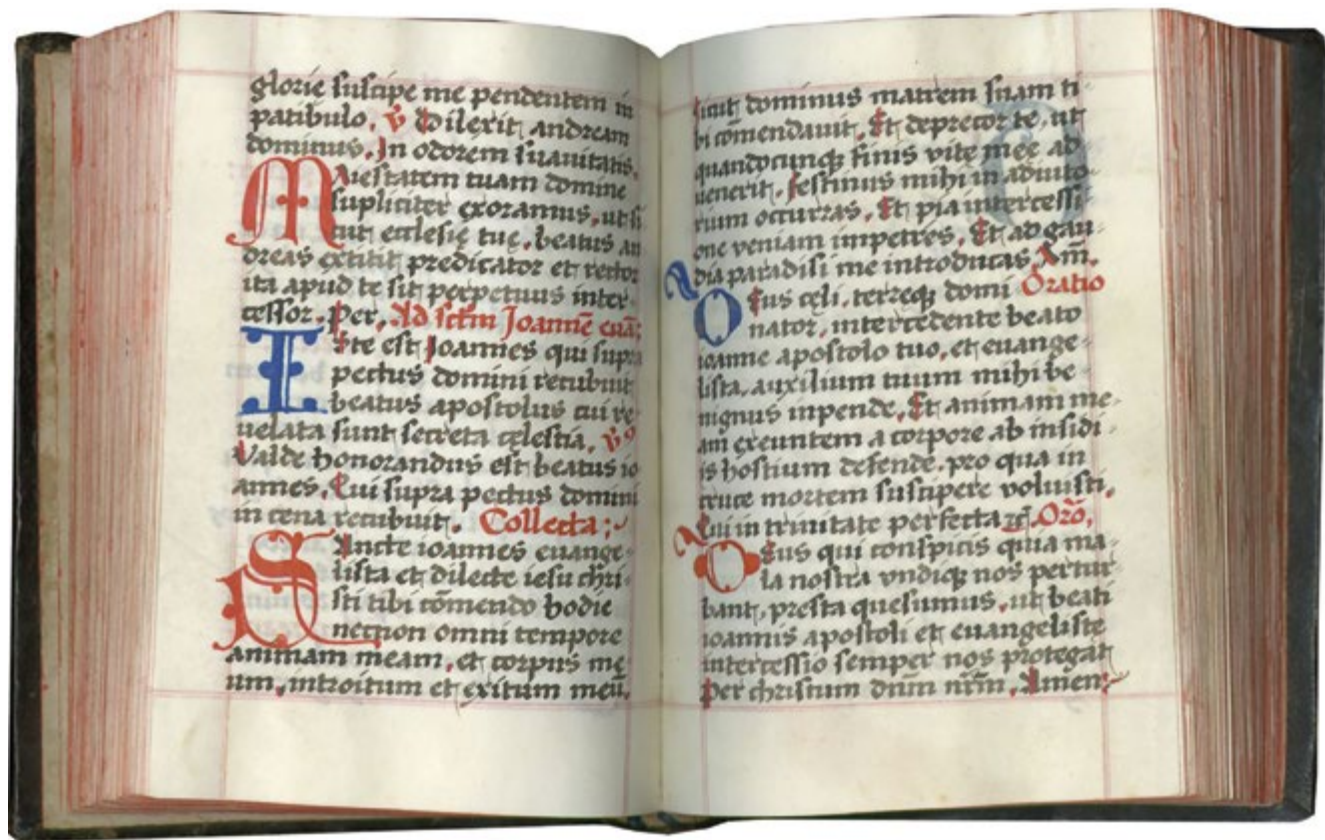 glorie suscipe me pendentem in
patibulo. v Dilexit andream
dominus. In odorem suavitatis.
Maiestatem tuam domine
supliciter exoramus, ut si
cut ecclesię tuę, beatus an
dreas extitit predicator et rector
ita apud te sit perpetuus inter-
cessor. Per. Ad sctm Joannē euā:
Iste est Joannes qui supra
pectus domini recubuit
beatus apostolus cui re
uelata sunt secreta cęlestia.
Valde honorandus est beatus io
annes. Qui supra pectus domini
in cena recubuit. Collecta:
Sancte ioannes euange-
lista et dilecte iesu chri-
sti tibi cōmendo hodie
necnon omni tempore
animam meam, et corpus mę
um, introitum et exitum meū.
sicut dominus matrem suam ti-
bi cōmendauit. Et deprecor te, ut
quandocunq; finis vitę meę ad
uenerit. festinus mihi in adiuto-
rium occurras. Et pia intercessi-
one veniam impetres. Et ad gau-
dia paradisi me introducas. Am̄.
Oratio
Deus cęli, terręq; domi
nator, intercedente beato
ioanne apostolo tuo, et euange-
lista, auxilium tuum mihi be-
nignus inpende. Et animam me-
am exeuntem a corpore ab insidi-
is hostium defende, pro qua in
cruce mortem suscipere voluisti.
Qui in trinitate perfecta Orō.
Deus qui conspicis quia ma-
la nostra vndiq; nos pertur-
bant, presta quesumus, ut beati
ioannis apostoli et euangeliste
intercessio semper nos protegat
Per christum dnm nrm. Amen: